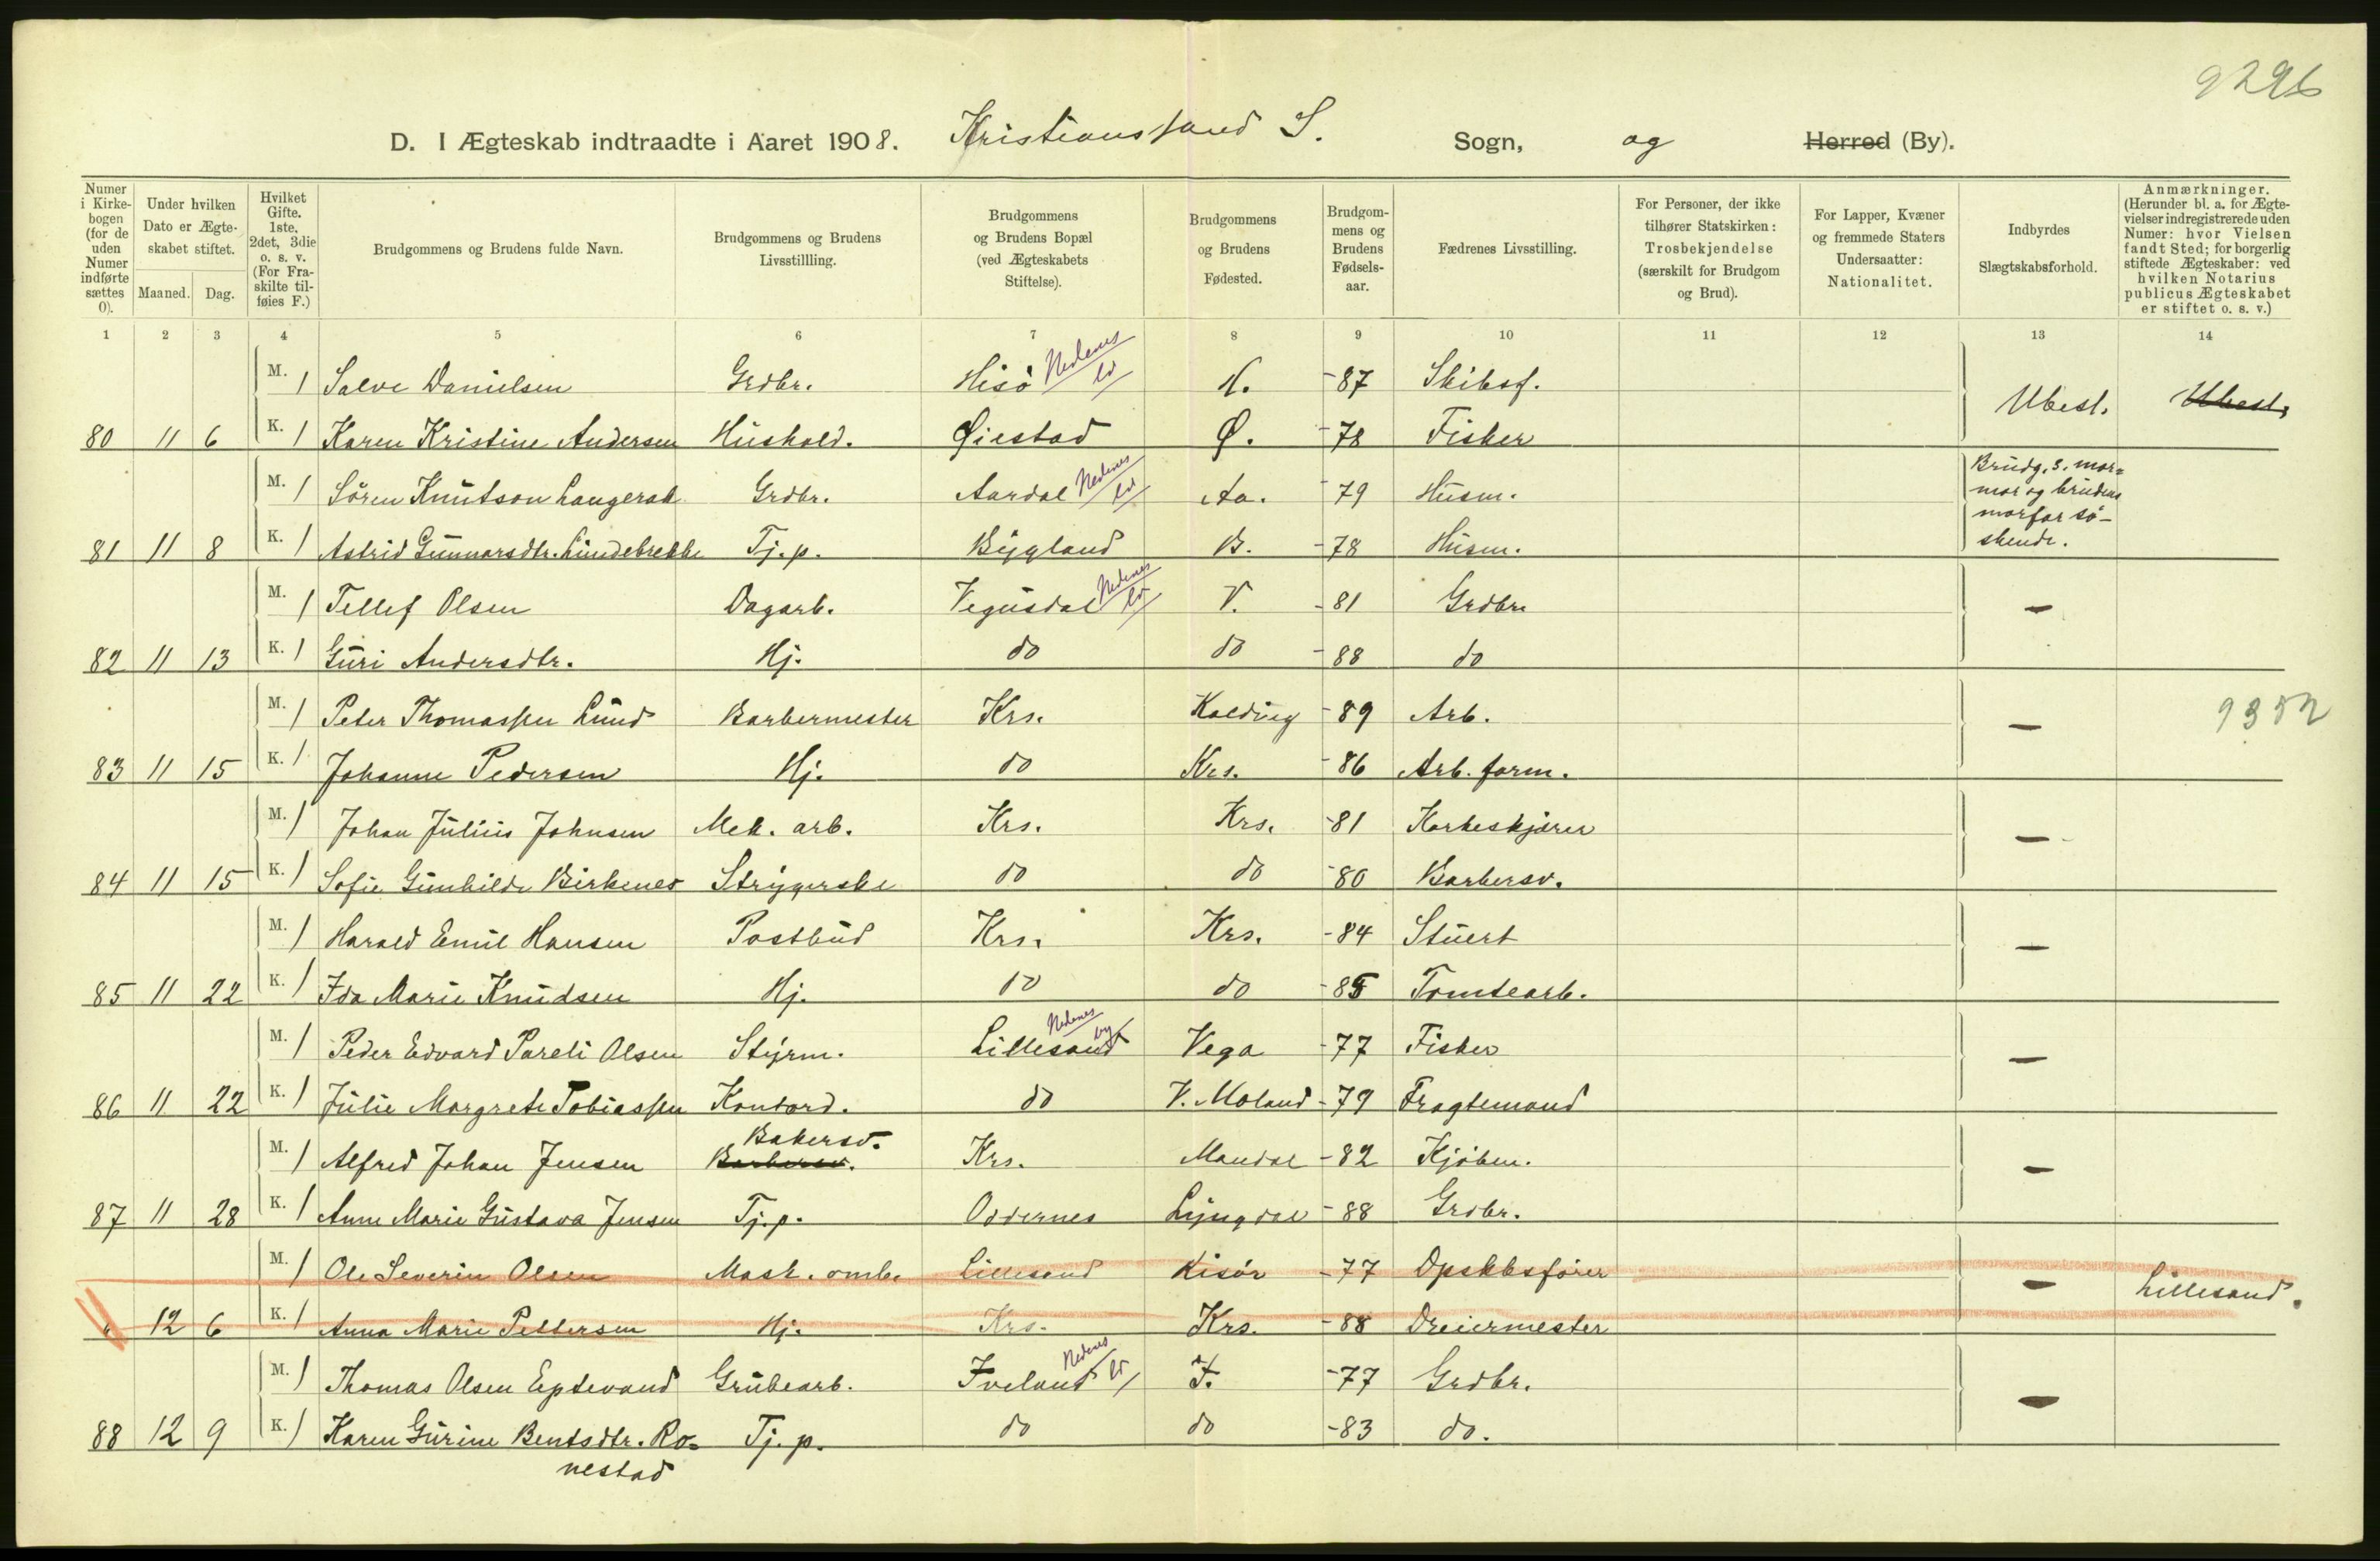 9296
D. I Ægteskab indtraadte i Aaret 1908. Kristianssand S. Sogn, og Herred (By).
Numer i Kirkebogen (for de uden Numer indførte sættes 0).
Under hvilken Dato er Ægteskabet stiftet.
Maaned. Dag.
Hvilket Gifte. 1ste, 2det, 3die o. s. v. (For Fraskilte tilføies F.)
Brudgommens og Brudens fulde Navn.
Brudgommens og Brudens Livsstillling.
Brudgommens og Brudens Bopæl (ved Ægteskabets Stiftelse).
Brudgommens og Brudens Fødested.
Brudgommens og Brudens Fødselsaar.
Fædrenes Livsstilling.
For Personer, der ikke tilhører Statskirken: Trosbekjendelse (særskilt for Brudgom og Brud).
For Lapper, Kvæner og fremmede Staters Undersaatter: Nationalitet.
Indbyrdes Slægtskabsforhold.
Anmærkninger. (Herunder bl. a. for Ægtevielser indregistrerede uden Numer: hvor Vielsen fandt Sted; for borgerlig stiftede Ægteskaber: ved hvilken Notarius publicus Ægteskabet er stiftet o. s. v.)
1 2 3 4 5 6 7 8 9 10 11 12 13 14
M. 1 Salve Danielsen Grdbr. Hisö Nedenes ld H. -87 Skibsf. Ubesl. Ubesl.
80 11 6 K. 1 Karen Kristine Andersen Hushold. Øiestad Ø. -78 Fisker
M. 1 Sören Knutson Langerak Grdbr. Aardal Nedenes ld Aa. -79 Husm. Brudg.s. mormor og brudens morfar söskende.
81 11 8 K. 1 Astrid Gunnarsdtr. Lindebrekke Tj.p. Bygland B. -78 Husm.
M. 1 Tellef Olsen Dagarb. Vegusdal Nedenes ld V. -81 Grdbr. —
82 11 13 K. 1 Guri Andersdtr. Hj. do do -88 do
M. 1 Peter Thomassen Lund Barbermester Krs. Kolding -89 Arb. — 9352
83 11 15 K. 1 Johanne Pedersen Hj. do Krs. -86 Arb. form.
M. 1 Johan Julius Johnsen Mek. arb. Krs. Krs. -81 Korkeskjærer —
84 11 15 K. 1 Sofie Gunhilde Birkenes Strygerske do do -80 Barbersv.
M. 1 Harald Emil Hansen Postbud Krs. Krs. -84 Stuert —
85 11 22 K. 1 Ida Marie Knudsen Hj. do do -85 Tomtearb.
M. 1 Peder Edvard Pareli Olsen Styrm. Lillesand Nedenes by Vega -77 Fisker —
86 11 22 K. 1 Julie Margrete Tobiassen Kontord. do V. Moland -79 Fragtemand
M. 1 Alfred Johan Jensen Barbersv. Bakersv. Krs. Mandal -82 Kjöbm. —
87 11 28 K. 1 Anne Marie Gustava Jensen Tj.p. Oddernes Lyngdal -88 Grdbr.
M. 1 Ole Severin Olsen Mask. omb. Lillesand Risör -77 Opskbsförer — Lillesand.
" 12 6 K. 1 Anna Marie Pettersen Hj. Krs. Krs. -88 Dreiermester
M. 1 Thomas Olsen Eptevand Grubearb. Iveland Nedenes ld I. -77 Grdbr. —
88 12 9 K. 1 Karen Gurine Bentsdtr. Ro=
nestad Tj.p. do do -83 do.